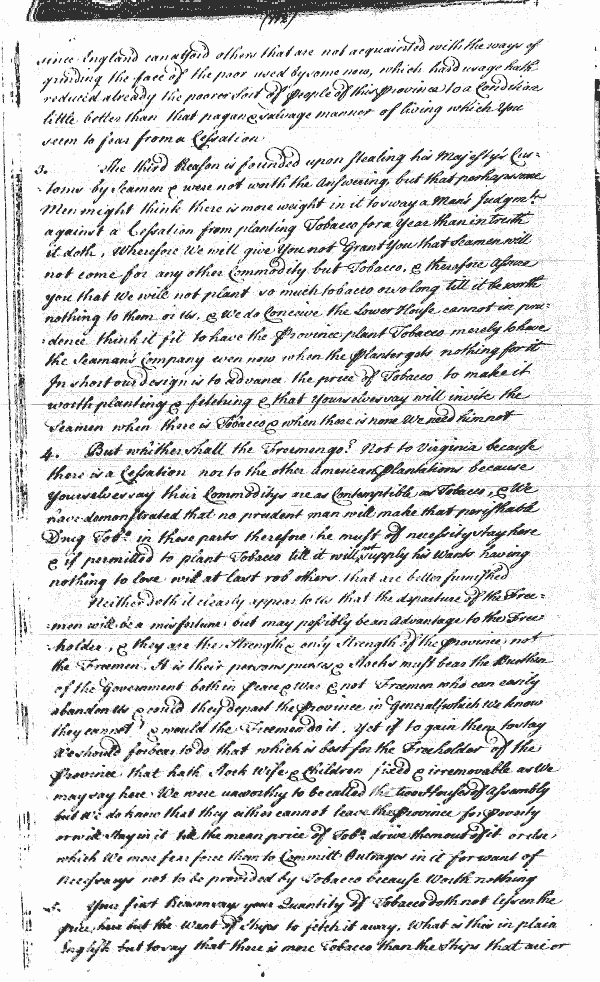 since England can afford others that are not acquainted with the ways of
grinding the face of the poor used by some now, which hard usage hath
reduced already the poorer sort of People of this Province to a Condition
little better than that pagan & salvage manner of living which You
seem to fear from a Cessation
3. The third Reason is founded upon stealing his Majesty's Cus-
toms by Seamen & were not worth the Answering, but that perhaps some
Men might think there is more weight in it to sway a Man's Judgmt.
against a Cessation from planting Tobacco for a Year than in truth
it doth, Wherefore We will give You not Grant You that Seamen will
not come for any other Commodity but Tobacco, & therefore Assure
you that We will not plant so much tobacco or so long till it be worth
nothing to them or Us, & We do Conceive the Lower House cannot in pru-
dence think it fit to have the Province plant Tobacco merely to have
the Seaman's Company even now when the Planter gets nothing for it
In short our design is to advance the price of Tobacco to make it
worth planting & fetching & that Yourselves say will invite the
Seamen when there is Tobacco & when there is none We need him not
4. But whither shall the Freemen go? Not to Virginia because
there is a Cessation nor to the other American Plantations because
Yourselves say their Commoditys are as Contemptible as Tobacco, & We
have demonstrated that no prudent man will make that perishable
Drug Tobo. in those parts therefore he must of necessity stay here
& if permitted to plant Tobacco till it will not supply his Wants having
nothing to lose will at last rob others that are better furnished
Neither doth it clearly appear to Us that the departure of the Free-
men will be a misfortune but may possibly be an Advantage to the Free-
holder, & they are the Strength & only Strength of the Province not
the Freemen. It is their persons purses & Stocks must bear the Burthen
of the Government both in Peace & War & not Freemen who can easily
abandon Us & could they depart the Province in General (which We know
they cannot) & would the Freemen do it, Yet if to gain them to stay
We should forbear to do that which is best for the Freeholder of the
Province that hath Stock Wife & Children fixed & irremovable as We
may say here We were unworthy to be called the two Houses of Assembly
but We do know that they either cannot leave the Province for Poverty
or will stay in it till the mean price of Tobo. drive them out of it or else,
which We more fear force them to Committ Outrages in it for want of
Necessarys not to be provided by Tobacco because Worth nothing
5. Your first Reason says your Quantity of Tobacco doth not lessen the
price here but the Want of Ships to fetch it away, What is this in plain
English but to say that there is more Tobacco than the Ships that are or